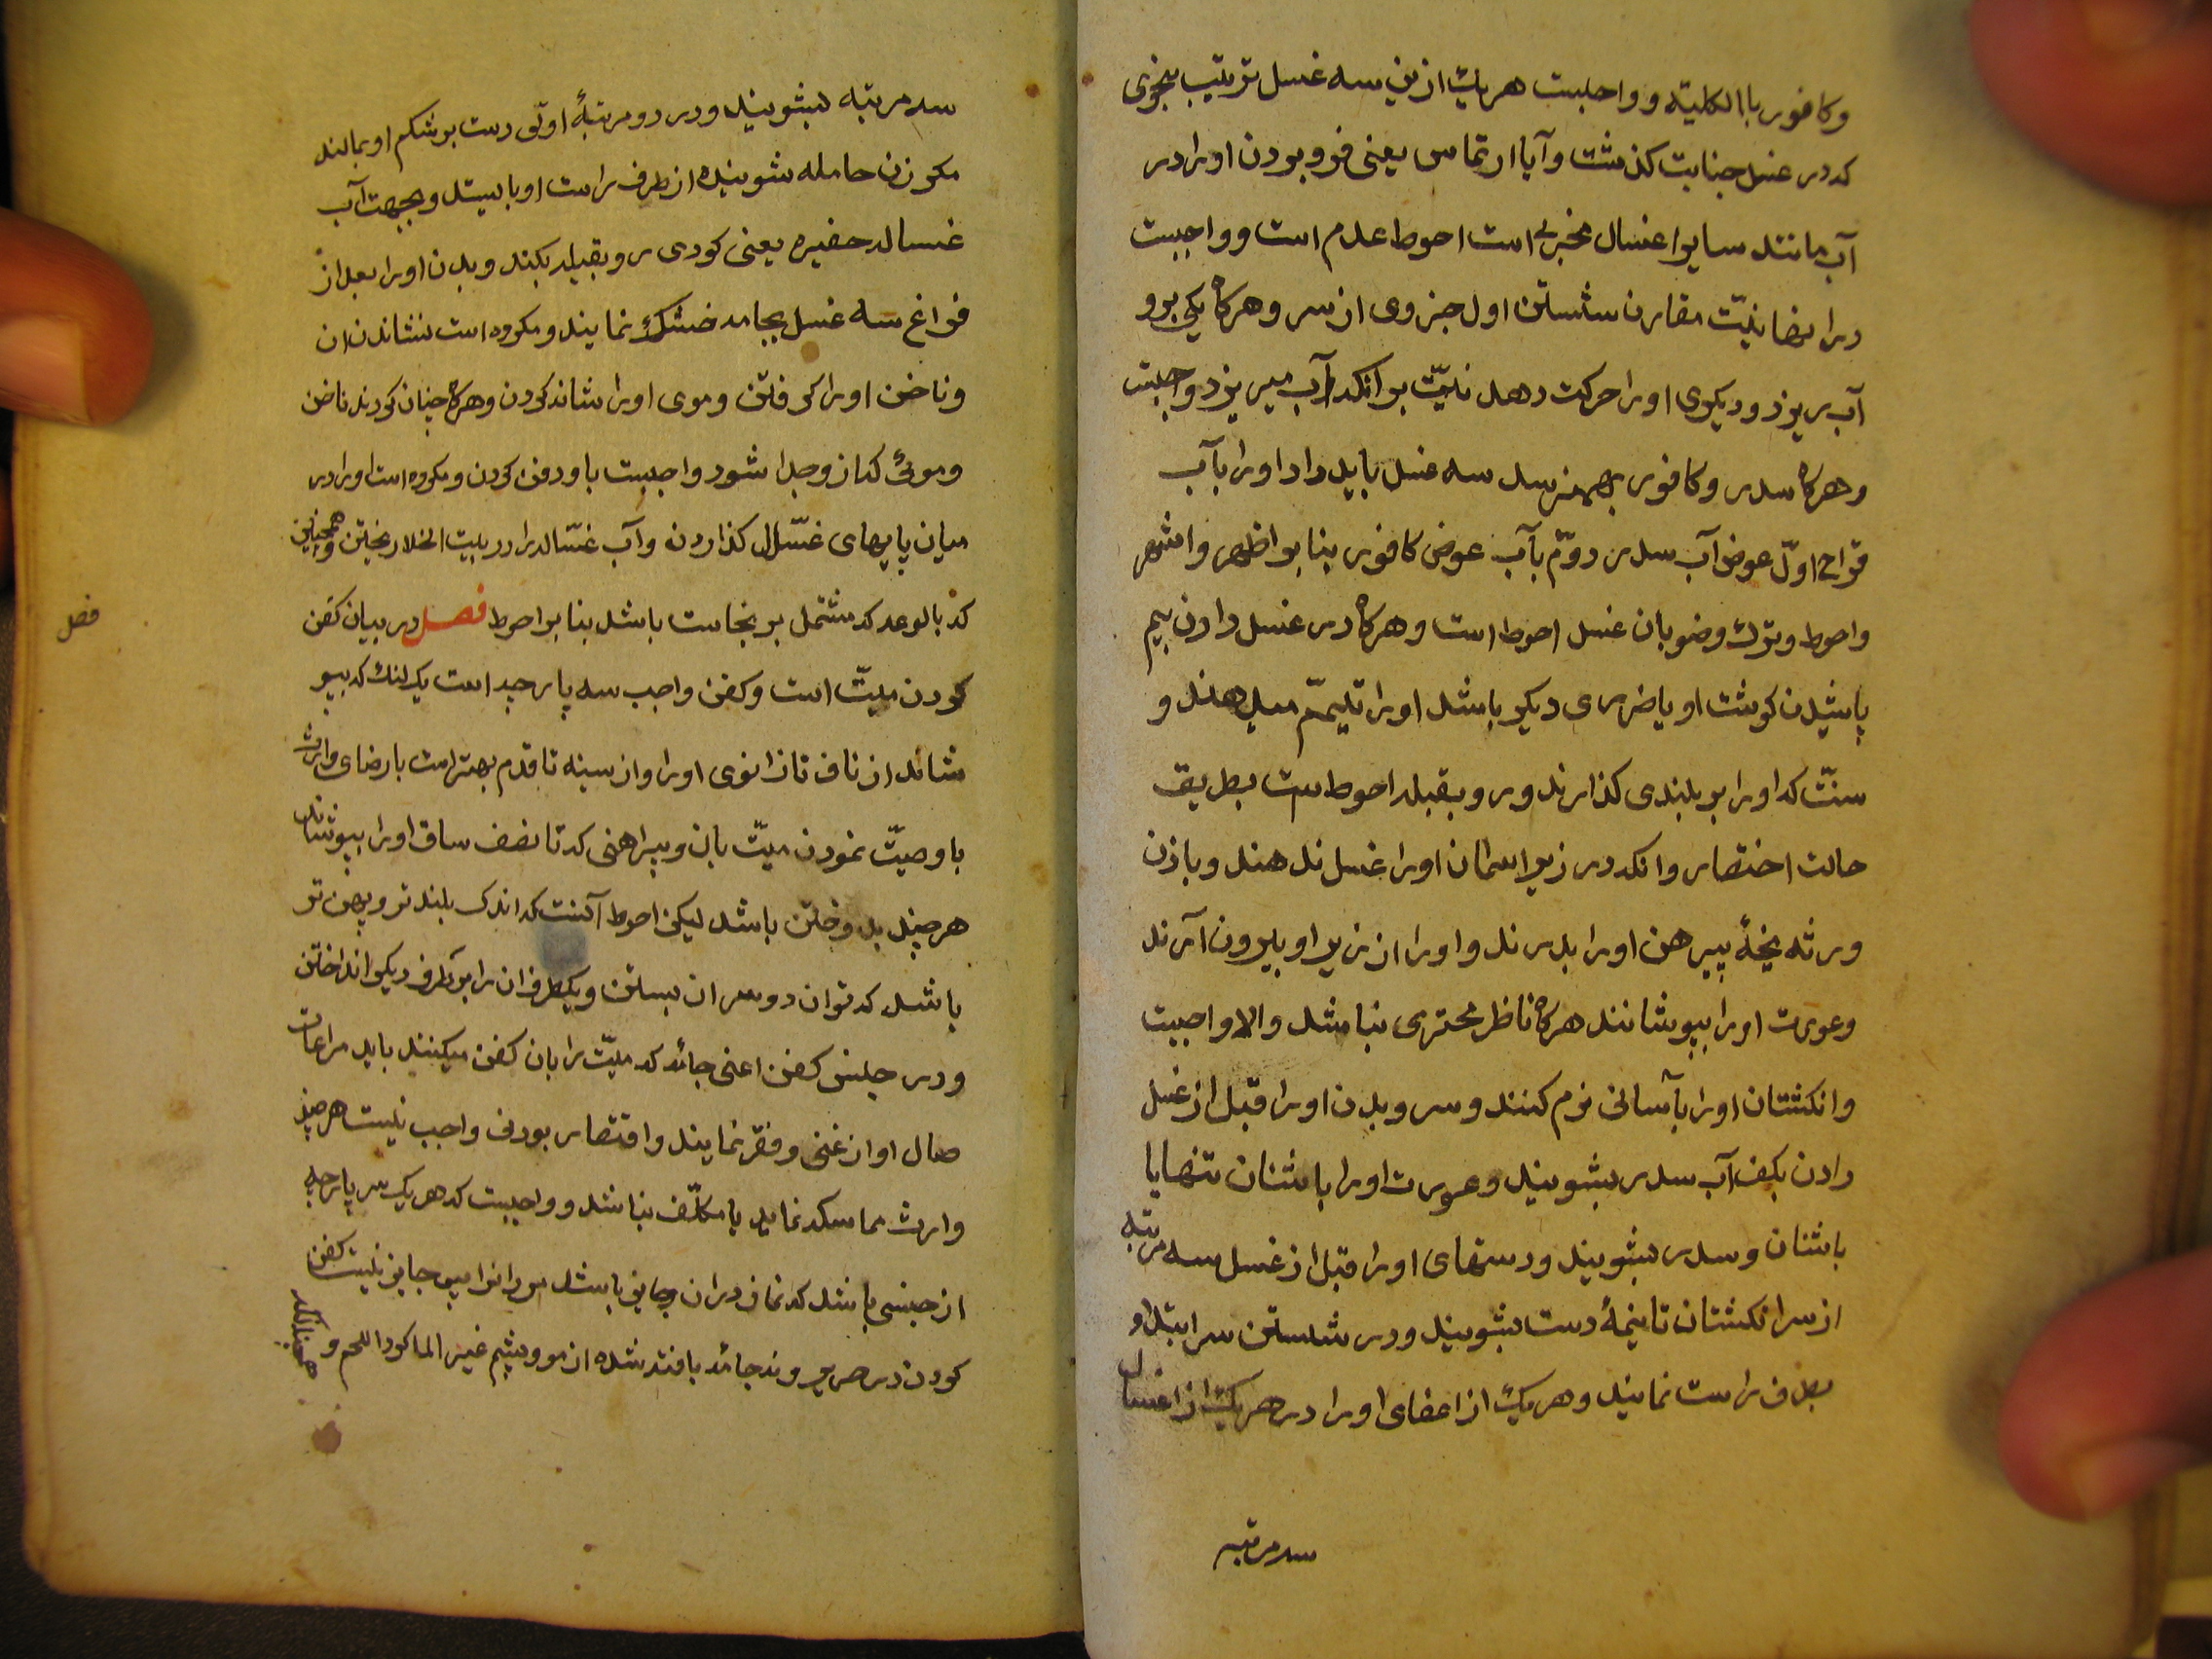 وکافور باالکلیته و واجبست هریك ازین سه غسل ترتیب بنحوی
که در غسل جنابت کذشت و آیا ارتماس یعنی فرو بردن اورا در
آب مانند سایر اغسال مجزیست احوط عدم است و واجبست
در ابتدا نیّت مقارن شستن اول جزوی از سر و هرکاه یکی برو
آب ریزد و دیکری اورا حرکت دهد نیّت بر انکه آب میریزد واجبست
و هرکاه سدر و کافور بهم نرسد سه غسل باید داد اورا بآب
قراح اوّل عوض آب سدر دوّم بآب عوض کافور بنا بر اظهر و اشهر
و احوط و ترك وضو بان غسل احوط است و هرکاه در غسل دادن بیم
پاشیدن کوشت او یا ضرری دیکر باشد اورا تیمّم میدهند و
سنّت که اورا بر بلندی کذارند و رو بقبله احوط است بطریق
حالت احتضار و انکه در زیر اسمان اورا غسل ندهند و باذن
ورثه یخهٔ پیرهن اورا بدرند و اورا از زیر او بیرون آرند
و عورت اورا بپوشانند هرکاه ناظر محترمی نباشد والا واجبست
و انکشتان اورا بآسانی نرم کنند و سر و بدن اورا قبل از غسل
دادن بکف آب سدر بشویند و عورت اورا باشنان تنها یا
باشنان و سدر بشویند و دستهای اورا قبل از غسل سه مرتبه
از سر انکشتان تا نیمهٔ دست بشویند و در شستن سر ابتدا و
بطرف راست نمایند و هریك از اعضای اورا در هریك از اغسال
سه مرتبه
سه مرتبه بشویند و در دو مرتبهٔ اوّل دست بر شکم او بمالند
مکر زن حامله شوینده از طرف راست او بایستد و بجهت آب
غساله حفیره یعنی کودی رو بقبله بکند و بدن اورا بعد از
فراغ سه غسل بجامه خشك نمایند و مکروه است نشاندن ان
و ناخن اورا کرفتن و موی اورا شانه کردن و هرکاه چنان کردند ناخن
و موئی که از و جدا شود واجبست با و دفن کردن و مکروه است اورا در
میان پایهای غسّال کذاردن و آب غسّاله را در بیت الخلا ریختن و همچنین
که بالوعه که مشتمل بر نجاست باشد بنا بر احوط فصل در بیان کفن
کردن میّت است و کفن واجب سه پارچه است یک لنك که بپو
شاند از ناف تا زانوی اورا و از سینه تا قدم بهتر است با رضای وارث
یا وصیّت نمودن میّت بان و پیراهنی که تا نصف ساق اورا بپوشاند
هرچند بدوختن باشد لیکن احوط آنست که اندک بلندتر و پهن تر
باشد که توان دو سر ان بستن و یکطرف ان را بر طرف دیکر انداختن
و در جنس کفن اعنی جامه که میّت را بان کفن میکنند باید مراعات
حال او از غنی و فقر نمایند و اقتصار بردن واجب نیست هرچند
وارث مماسکه نماید یا مکلّف نباشد و واجبست که هریک سر پارچه
از جنسی باشد که نماز دران جایز باشد جایز نیست کفن
کردن در حریر و نه جامه بافته شده از مو و پشم غیر الماکول اللحم و همچنانکه
فصل